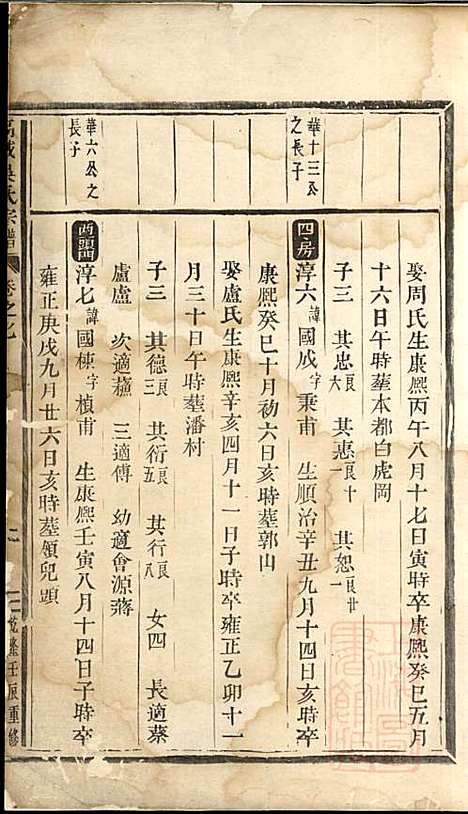 娶周氏生康熙丙午八月十七日寅時卒康熙癸巳五月
十六日午時葬本都白虎岡
子三 其忠良六 其惠良十一 其恕良廿一
華十三公之長子
四房 淳六諱國成字秉甫 生順治辛丑九月十四日亥時卒
康熙癸巳十月初六日亥時葬郭山
娶盧氏生康熙辛亥四月十一日子時卒雍正乙卯十一
月三十日午時葬潘村
子三 其德良三 其衍良五 其行良八 女四 長適蔡
盧盧 次適蘓 三適傅 幼適會源蔣
華六公之長子
西頭門 淳七諱國棟字楨甫 生康熙壬寅八月十四日子時卒
雍正庚戌九月廿六日亥時葬領兒頭
吳氏宗譜 卷之七 二 壬辰重修